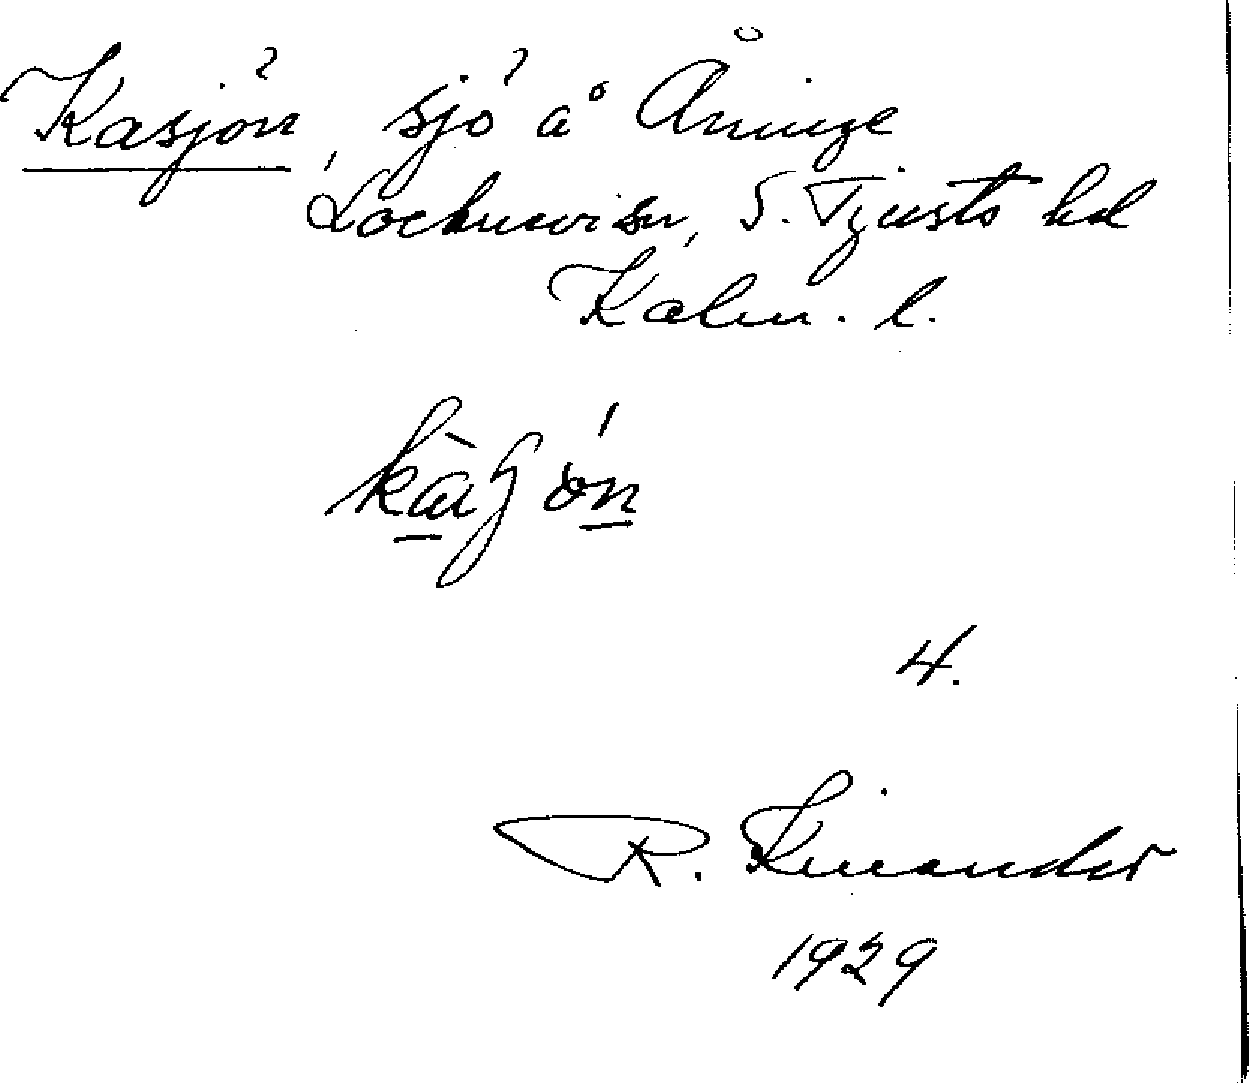 Kasjön, sjö å Åninge
Locknevi sn, S. Tjusts hd
Kalm. l.
4.
R. Kinander
1929